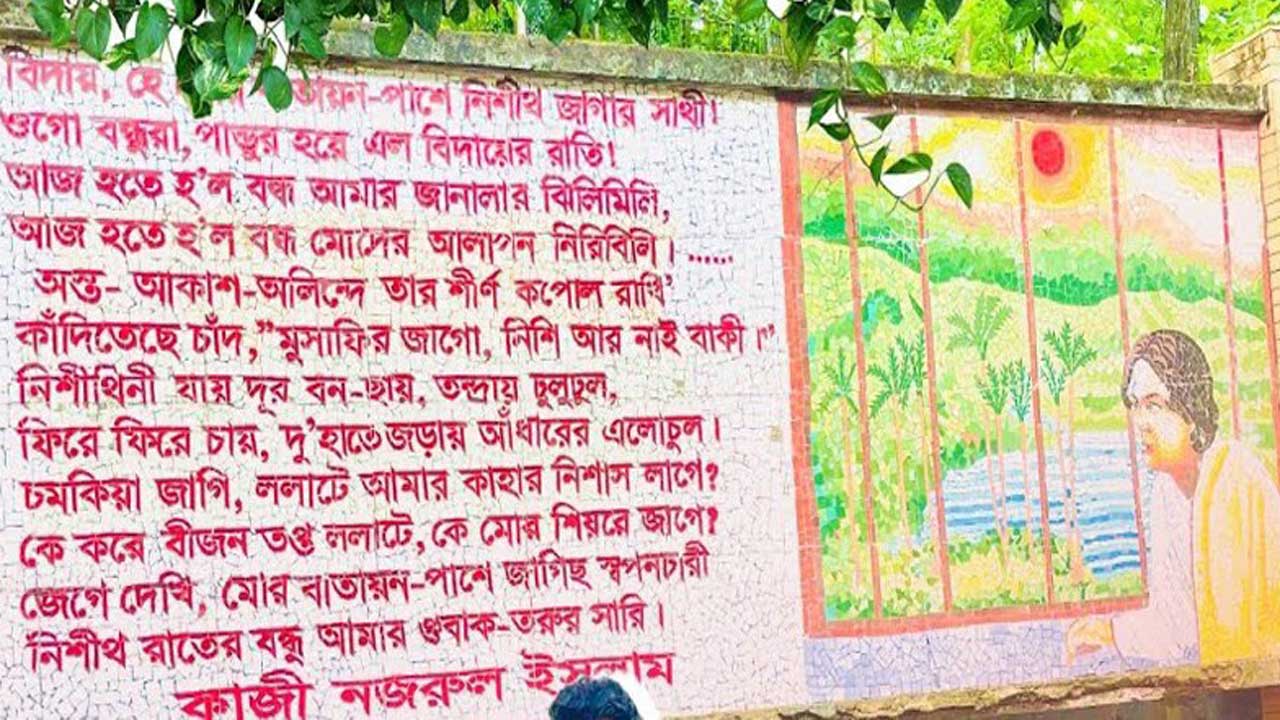 বিদায়, হে বাতায়ন-পাশে নিশীথ জাগার সাথী!
ওগো বন্ধুরা, পান্ডুর হয়ে এল বিদায়ের রাতি!
আজ হতে হ'ল বন্ধ আমার জানালার ঝিলিমিলি,
আজ হতে হ'ল বন্ধ মোদের আলাপন নিরিবিলি। ......
অস্ত- আকাশ-অলিন্দে তার শীর্ণ কপোল রাখি'
কাঁদিতেছে চাঁদ,"মুসাফির জাগো, নিশি আর নাই বাকী।"
নিশীথিনী যায় দূর বন-ছায়, তন্দ্রায় ঢুলুঢুল,
ফিরে ফিরে চায়, দু'হাতে জড়ায় আঁধারের এলোচুল।
চমকিয়া জাগি, ললাটে আমার কাহার নিশাস লাগে?
কে করে বীজন তপ্ত ললাটে, কে মোর শিয়রে জাগে?
জেগে দেখি, মোর বাতায়ন-পাশে জাগিছ স্বপনচারী
নিশীথ রাতের বন্ধু আমার গুবাক-তরুর সারি।
কাজী নজরুল ইসলাম